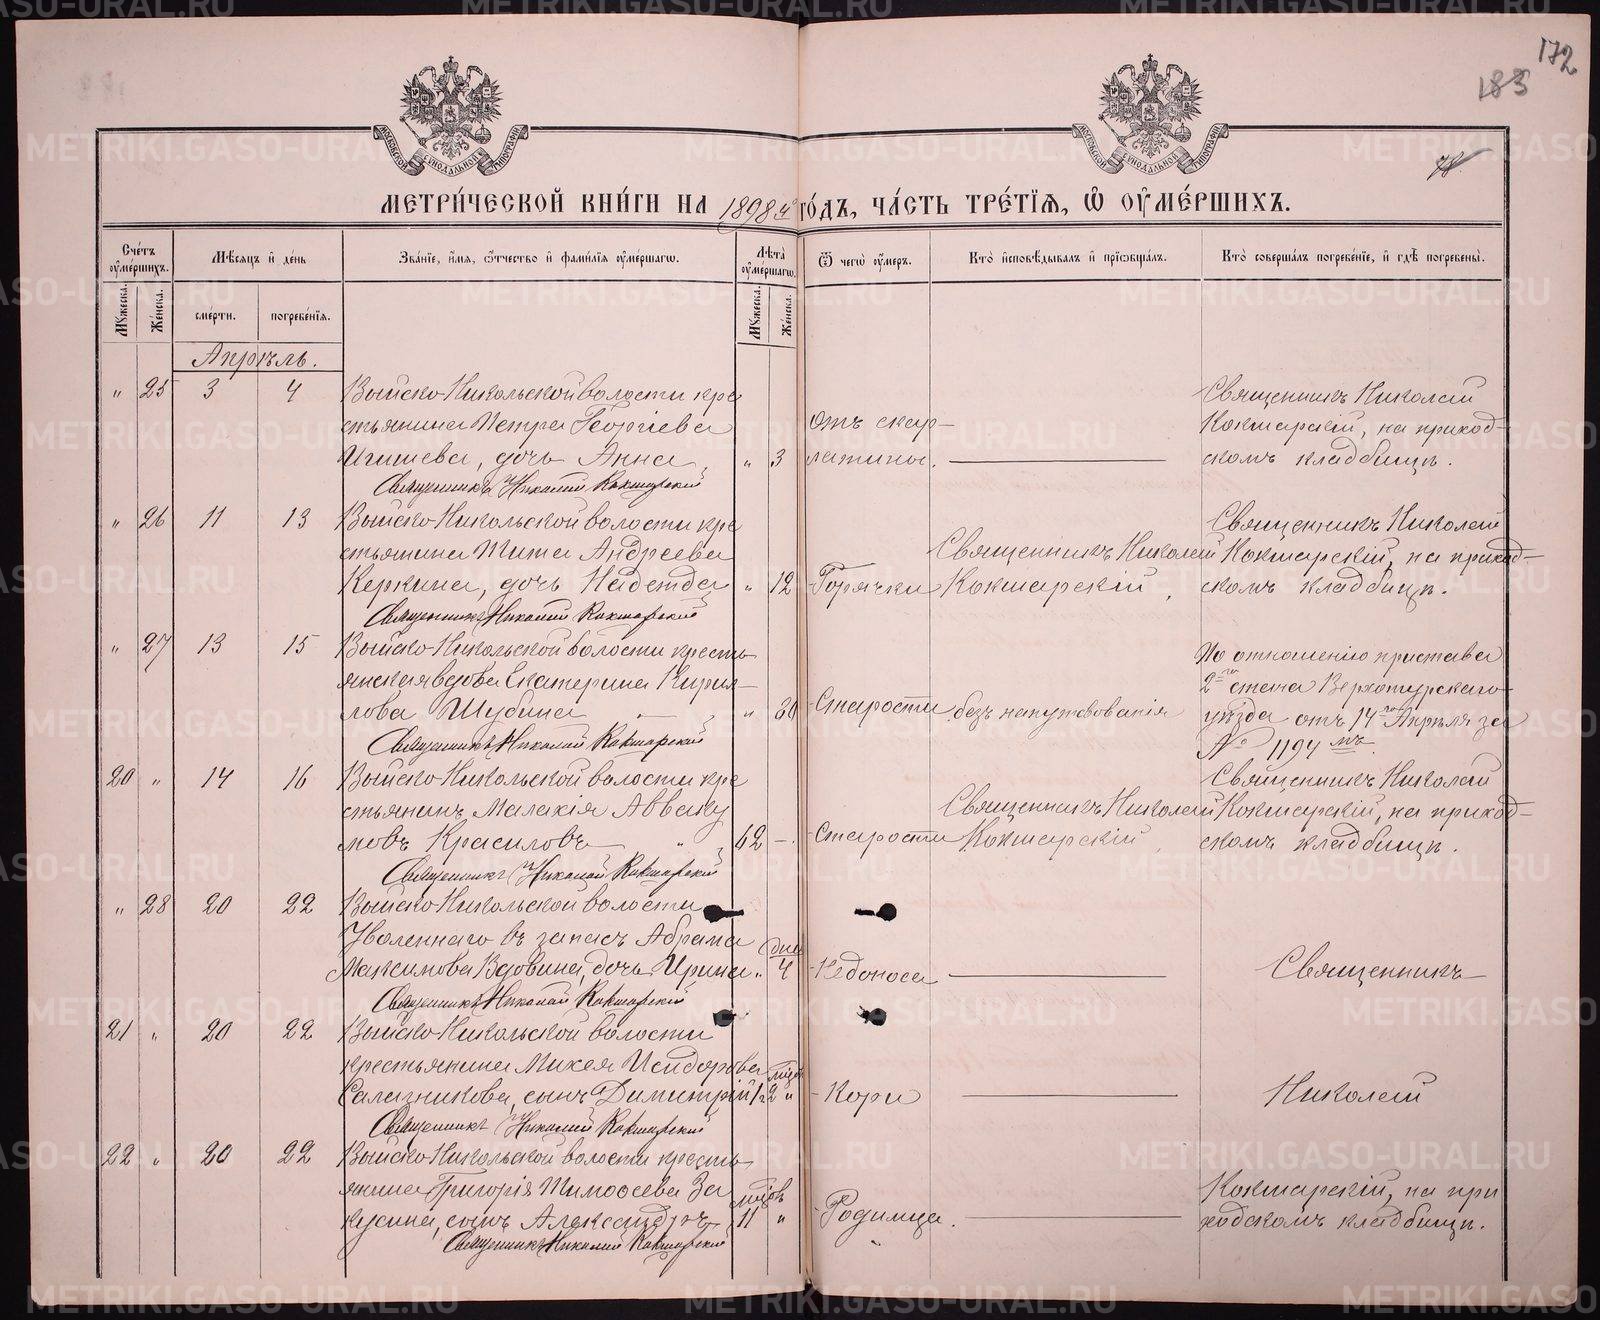 172
183
78
МОСКОВСКОЙ СѴНОДАЛЬНОЙ ТИПОГРАФІИ
МОСКОВСКОЙ СѴНОДАЛЬНОЙ ТИПОГРАФІИ
МЕТРИ́ЧЕСКОЙ КНИ́ГИ НА 1898й ГО́ДЪ, ЧА́СТЬ ТРЕ́ТІѦ, Ѿ ОУМЕ́РШИХЪ.
Сче́тъ оумершихъ.
Мѣсяцъ и день
Званіе, имя, отчество и фамилія оумершагω.
Лѣта оумершагω.
Ѿ чегω оумеръ.
Кто исповѣдывалъ и прiωбщалъ.
Кто совершалъ погребеніе, и гдѣ погребены.
Мужеска.
Женска.
смерти.
погребенія.
Мужеска.
Женска.
Апрѣль.
" 25 3 4 Выйско-Никольской волости кре
стьянина Петра Георгіева
Игишева, дочь Анна, " 3
Священникъ Николай Кокшарскій
отъ скар-
латины.
Священникъ Николай
Кокшарскій, на приход-
скомъ кладбищѣ.
" 26 11 13 Выйско-Никольской волости кре
стьянина Тита Андреева
Керкина, дочь Надежда " 12
Священникъ Николай Кокшарскій
Горячки
Священникъ Николай
Кокшарскій,
Священникъ Николай
Кокшарскій, на приход-
скомъ кладбищѣ.
" 27 13 15 Выйско-Никольской волости кресть-
янская вдова Екатерина Кирил-
лова Шубина " 80
Священникъ Николай Кокшарскій
Старости
безъ напутствованія
По отношенію пристава
2го стана Верхотурскаго
уѣзда отъ 14го Апрѣля за
№ 1194мъ
20 " 14 16 Выйско-Никольской волости кре
стьянинъ Малахія Авваку
мовъ Красиловъ 62 -
Священникъ Николай Кокшарскій
Старости
Священникъ Николай
Кокшарскій,
Священникъ Николай
Кокшарскій, на приход-
скомъ кладбищѣ.
" 28 20 22 Выйско-Никольской волости
Уволеннаго въ запасъ Абрама
Максимова Вдовина, дочь Ирина " 4 дня
Священникъ Николай Кокшарскій
Недоноса
Священникъ
21 " 20 22 Выйско-Никольской волости
крестьянина Михея Исидорова
Салазникова, сынъ Димитрій 1г 2 "
Священникъ Николай Кокшарскій
Кори
Николай
22 " 20 22 Выйско-Никольской волости кресть-
янина Григорія Тимоѳеева За
кусина, сынъ Александръ 11 "
Священникъ Николай Кокшарскій
Родимца.
Кокшарскій, на при
ходскомъ кладбищѣ.
METRIKI.GASO-URAL.RU